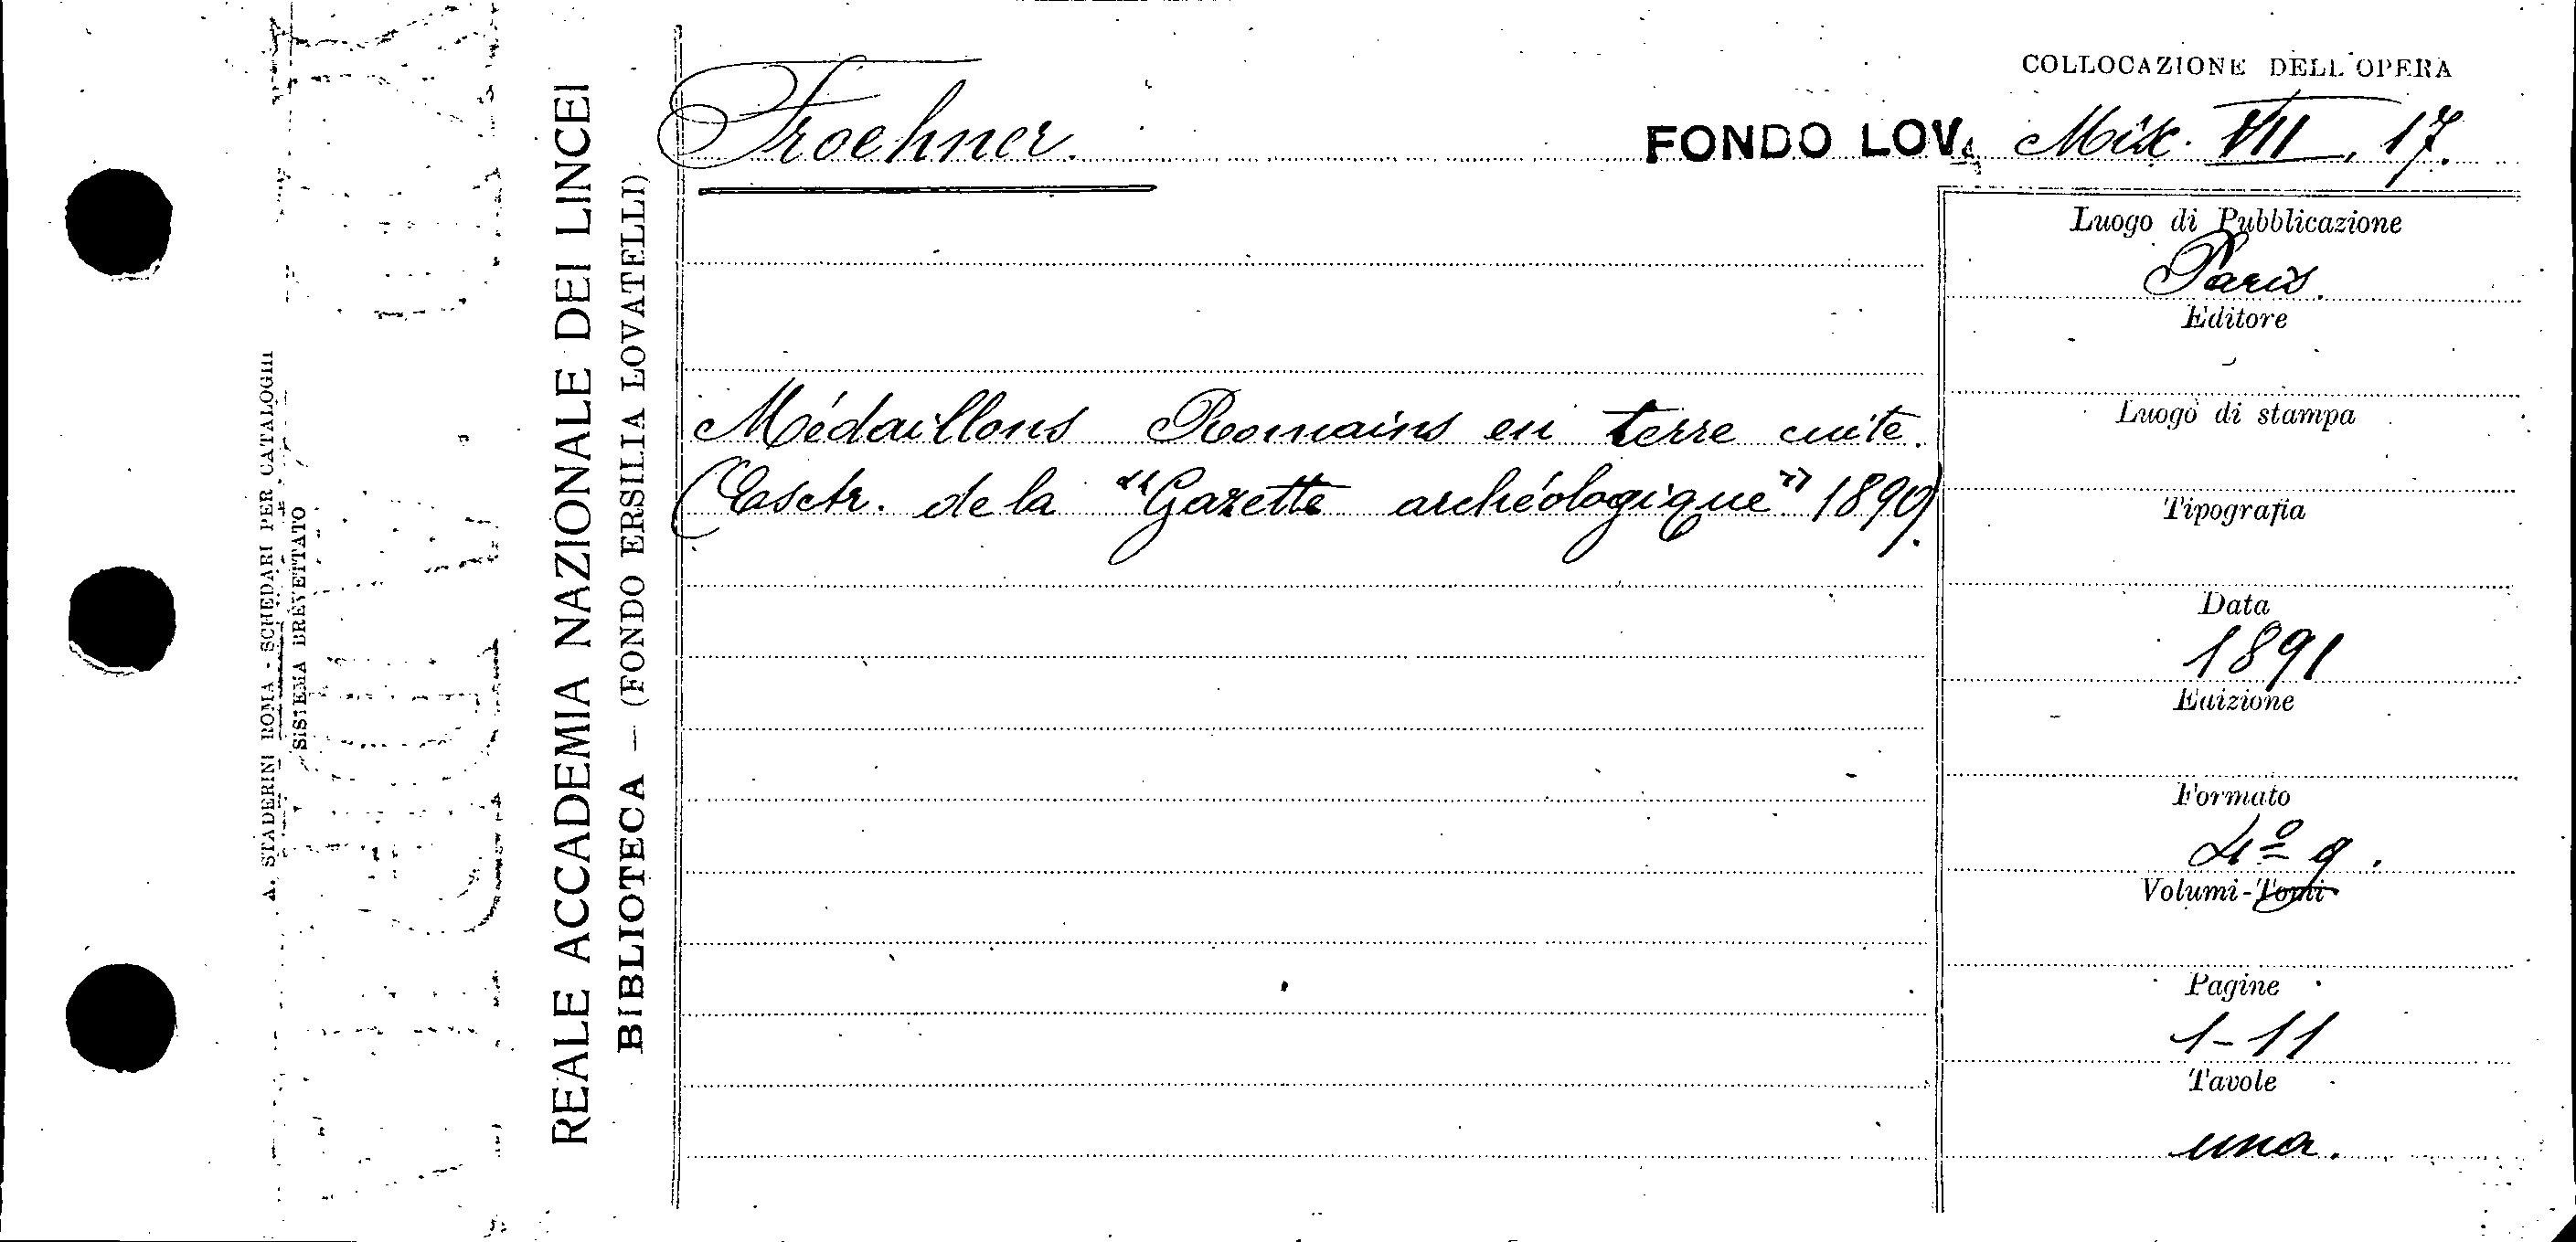 COLLOCAZIONE DELL'OPERA
Froehner.
FONDO LOV. Misc. VII, 17.
Médaillons Romains en terre cuite.
(Esctr. de la "Gazette archéologique" 1890).
Luogo di Pubblicazione
Paris.
Editore
Luogo di stampa
Tipografia
Data
1891
Edizione
Formato
4º g.
Volumi-Tomi
Pagine
1-11
Tavole
una.
REALE ACCADEMIA NAZIONALE DEI LINCEI
BIBLIOTECA — (FONDO ERSILIA LOVATELLI)
A. STADERINI ROMA - SCHEDARI PER CATALOGHI
SISTEMA BREVETTATO